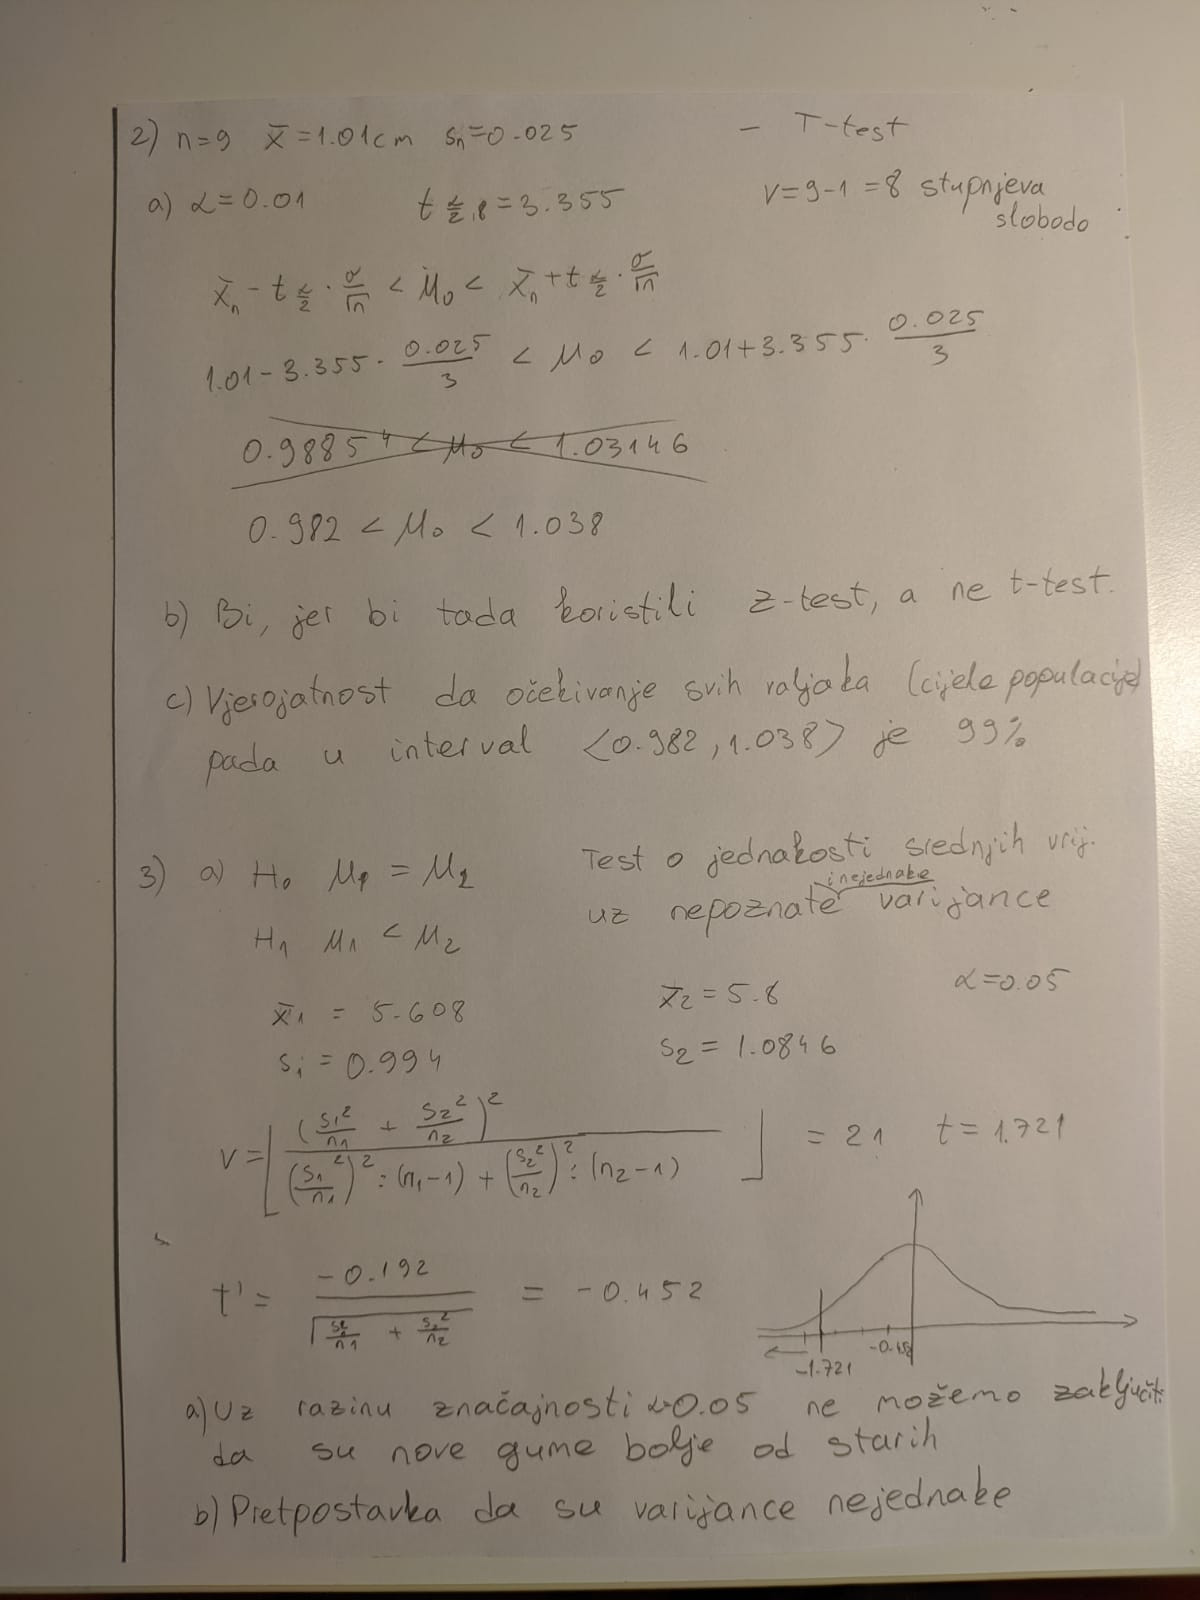 2) n=9 x̄=1.01cm sn=0.025 - T-test
a) α=0.01 t α/2,8 = 3.355 v=9-1=8 stupnjeva
slobodo
x̄n - t α/2 · σ/√n < μ0 < x̄n + t α/2 · σ/√n
1.01 - 3.355 · 0.025/3 < μ0 < 1.01 + 3.355 · 0.025/3
0.98854 < μ0 < 1.03146
0.982 < μ0 < 1.038
b) Bi, jer bi tada koristili z-test, a ne t-test.
c) Vjerojatnost da očekivanje svih valjaka (cijele populacije)
pada u interval <0.982, 1.038> je 99%
3) a) H0 μ1 = μ2 Test o jednakosti srednjih vrij.
i nejednake
uz nepoznate varijance
H1 μ1 < μ2
x̄1 = 5.608 x̄2 = 5.8 α=0.05
s1 = 0.994 s2 = 1.0846
v = ⌊ (s1²/n1 + s2²/n2)² / ((s1²/n1)² : (n1-1) + (s2²/n2)² : (n2-1)) ⌋ = 21 t = 1.721
t' = -0.192 / √(s1²/n1 + s2²/n2) = -0.452
-1.721 -0.452
a) Uz razinu značajnosti α=0.05 ne možemo zaključiti
da su nove gume bolje od starih
b) Pretpostavka da su varijance nejednake